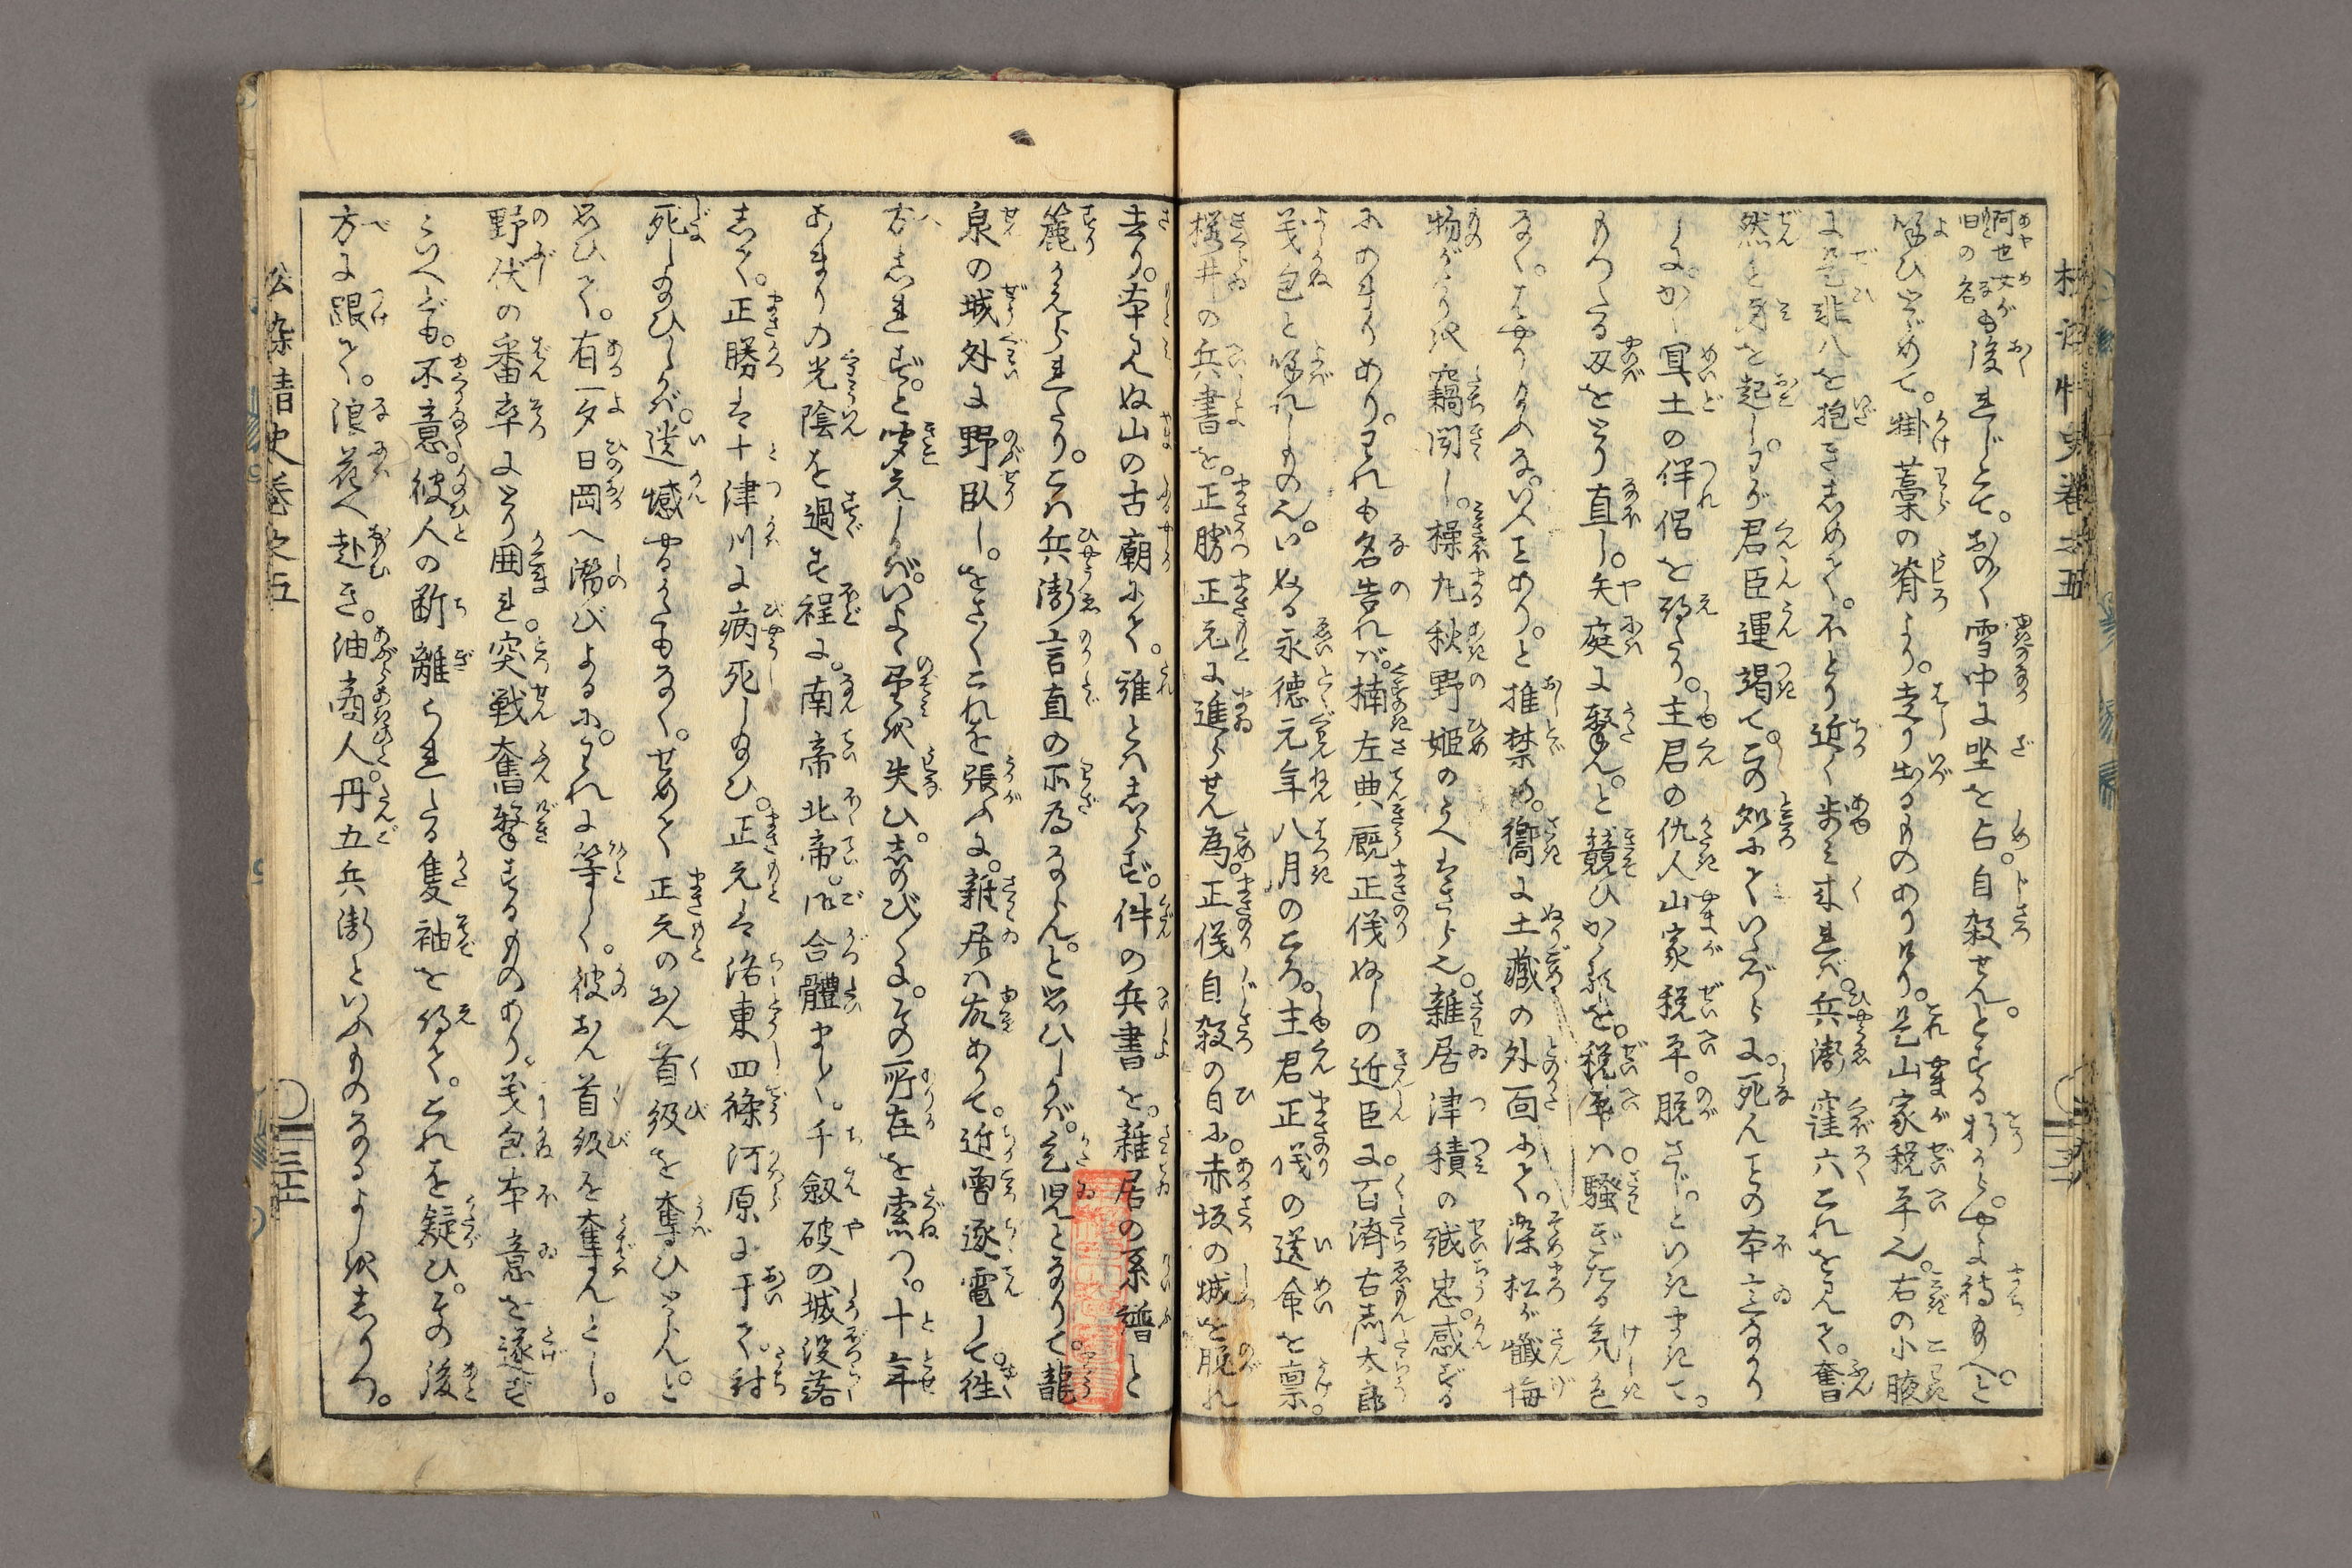 阿也女が
旧の名
も後れじとて。おの〳〵雪中に坐を占。自殺せんとする折から。やよ待給へと
喚びとゞめて。掛藁の脊より。走り出るものありけり。是山家税平也。右の小腋
に是非八を抱きしめて。不とり近く歩み来れば。兵衛窪六これを見て。奮
然と身を起し。わが君臣運竭て。この処にていたづらに。死んこの本意なかり
しに。かゝ冥土の伴侶を得たり。主君の仇人山家税平。脱さじ。といきまきて。
もつたる刃をとり直し。矢庭に撃ん。と競ひかゝるを。税平は騒ぎたる気色
なく。はやり給ふな。いふ〓あり。と推禁め。嚮に土蔵の外面にて。染松が懺悔
物がたりを竊聞し。操丸秋野姫のうへはさら也。雑居津積の誠忠。感ずる
にあまりあり。われも名告れば。楠左典厩正儀ぬしの近臣に。百済右衛門太郎
義包と喚れしもの也。いぬる永徳元年八月のころ。主君正儀の送命を禀。
桜井の兵書を。正勝正元に進らせん為。正儀自殺の日に。赤坂の城を脱れ
去り。本見ぬ山の古廟にて。誰とはしらず。件の兵書を。雑居の系譜と
簏かえられたり。こは兵衛言直の所為ならん。と思ひしかば。乞児となりて。龍
泉の城外に野臥し。をさ〳〵これを張ふに。雑居は故ありて。近曽逐電して。往
方しれず。と聞えしかば。いよ〳〵望を失ひ。しのび〳〵に。その所在を索つ。十年
あまりの光陰を過す程に。南帝北帝。御合體まし〳〵。千釼破の城没落
して。正勝は十津川に病死し給ひ。正元は洛東四條河原に于て討
死し給ひしかば。遺憾やるかたもなく。せめて正元のおん首級を奪ひとらん。と
思ひて。有一夕日岡へ潜びよるに。われに等しく。彼おん首級を奪んとし。
野伏の番卒にとり囲れ。突戦奮撃するものあり。義包本意を遂ず
といへども。不意。彼人の断離られたる隻袖を得て。これを疑ひ。その後
方に跟て。浪花へ赴き。油商人。丹五兵衛といふものなるよしをしりつ。
松染情史巻之五
〇三十二